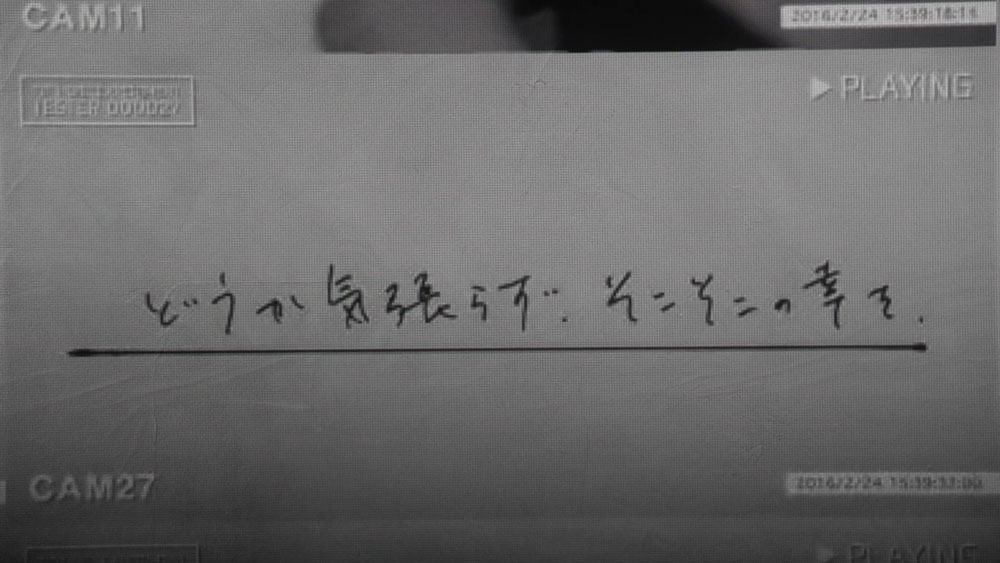 CAM11
2016/2/24 15:39:18:14
TESTER 000027
▶ PLAYING
どうか気張らず. そこそこの幸を.
CAM27
2016/2/24 15:39:37:00
▶ PLAYING